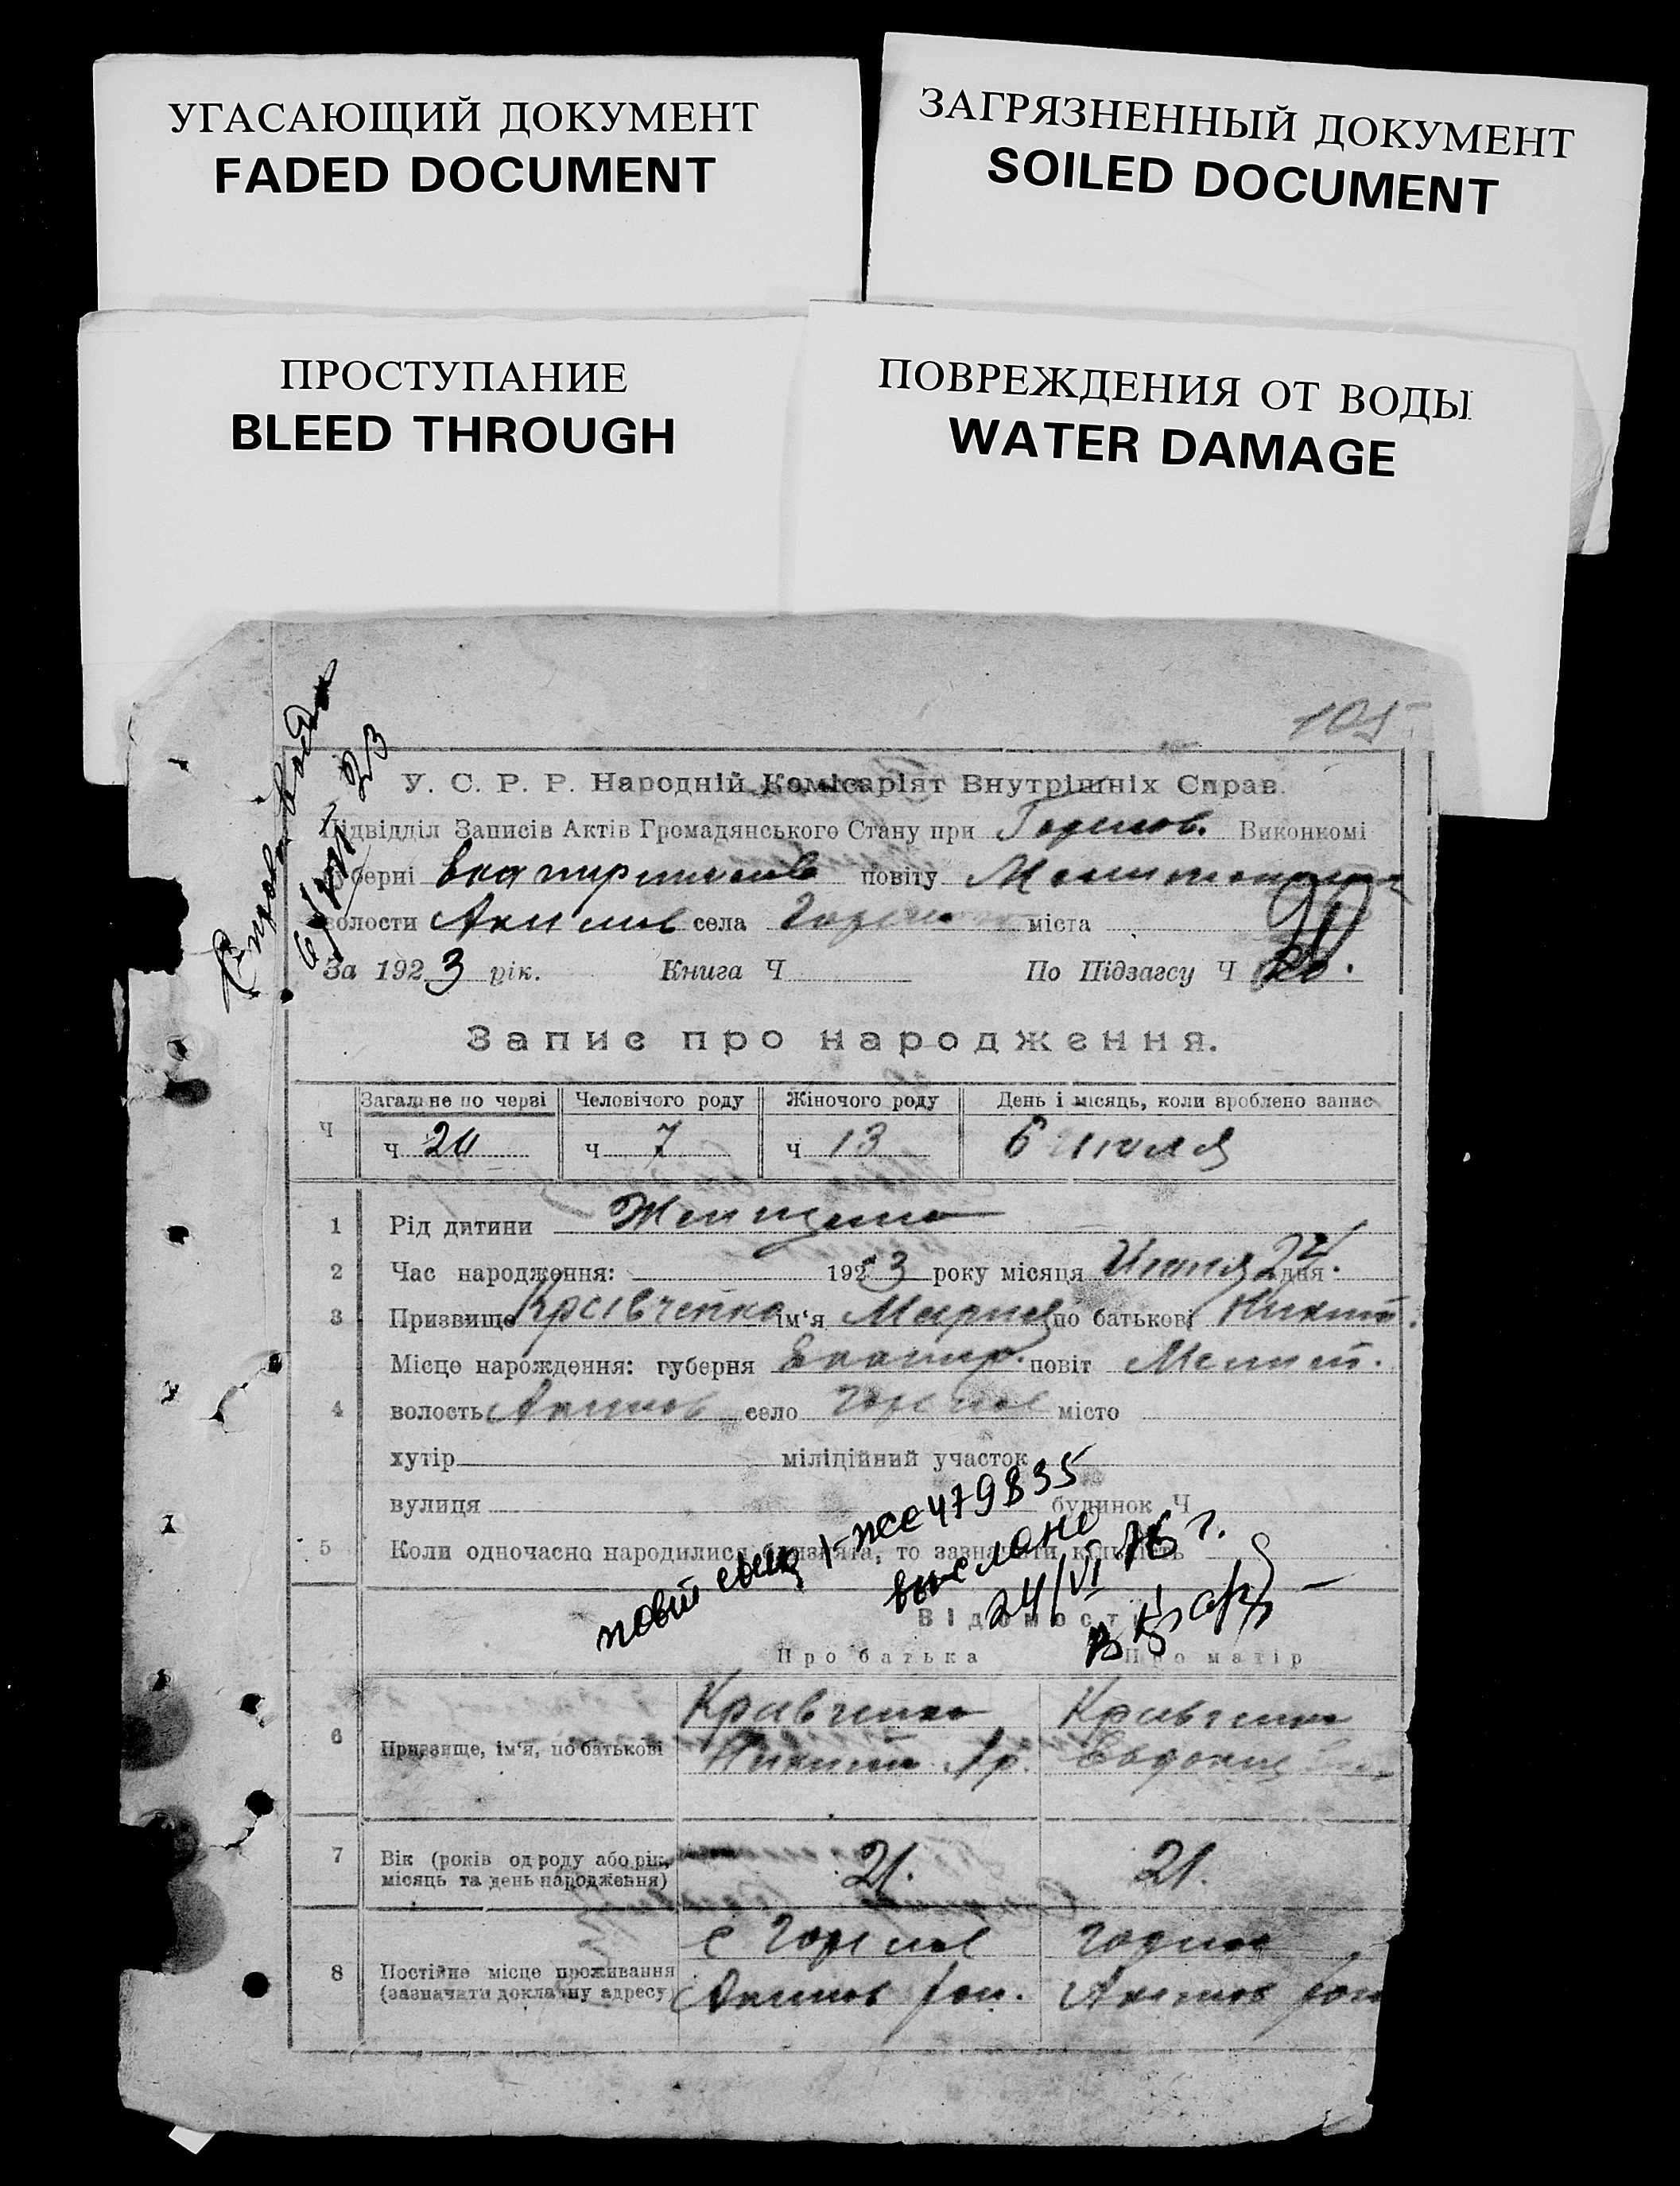 УГАСАЮЩИЙ ДОКУМЕНТ
FADED DOCUMENT
ЗАГРЯЗНЕННЫЙ ДОКУМЕНТ
SOILED DOCUMENT
ПРОСТУПАНИЕ
BLEED THROUGH
ПОВРЕЖДЕНИЯ ОТ ВОДЫ
WATER DAMAGE
105
У. С. Р. Р. Народній Комісаріят Внутрішніх Справ.
Підвідділ Записів Актів Громадянського Стану при Виконкомі
губерні повіту
волости Акимов села міста
20
За 1923 рік. Книга Ч По Підзагсу Ч 20.
Запис про народження.
Загальне по черзі Человічого роду Жіночого роду День і місяць, коли зроблено запис
Ч ч 20 ч 7 ч 13 6 июля
1 Рід дитини Женщина
2 Час народження: 1923 року місяця дня
3 Призвище Кравченко ім'я Мария по батькові Никит.
Місце народження: губерня Екатер. повіт Мелит.
4 волость Акимов село місто
хутір міліційний участок
вулиця будинок Ч
5 Коли одночасно народилися близнята, то зазначити кількість
повт свид 1-псе 479835
выслано
24/VI 76 г.
Відомості
Про батька Про матір
Кравченко Кравченко
6 Призвище, ім'я, по батькові Никита Евдокия
7 Вік (років од роду або рік, місяць та день народження) 21. 21.
8 Постійне місце проживання (зазначати докладну адресу)
Акимов Акимов